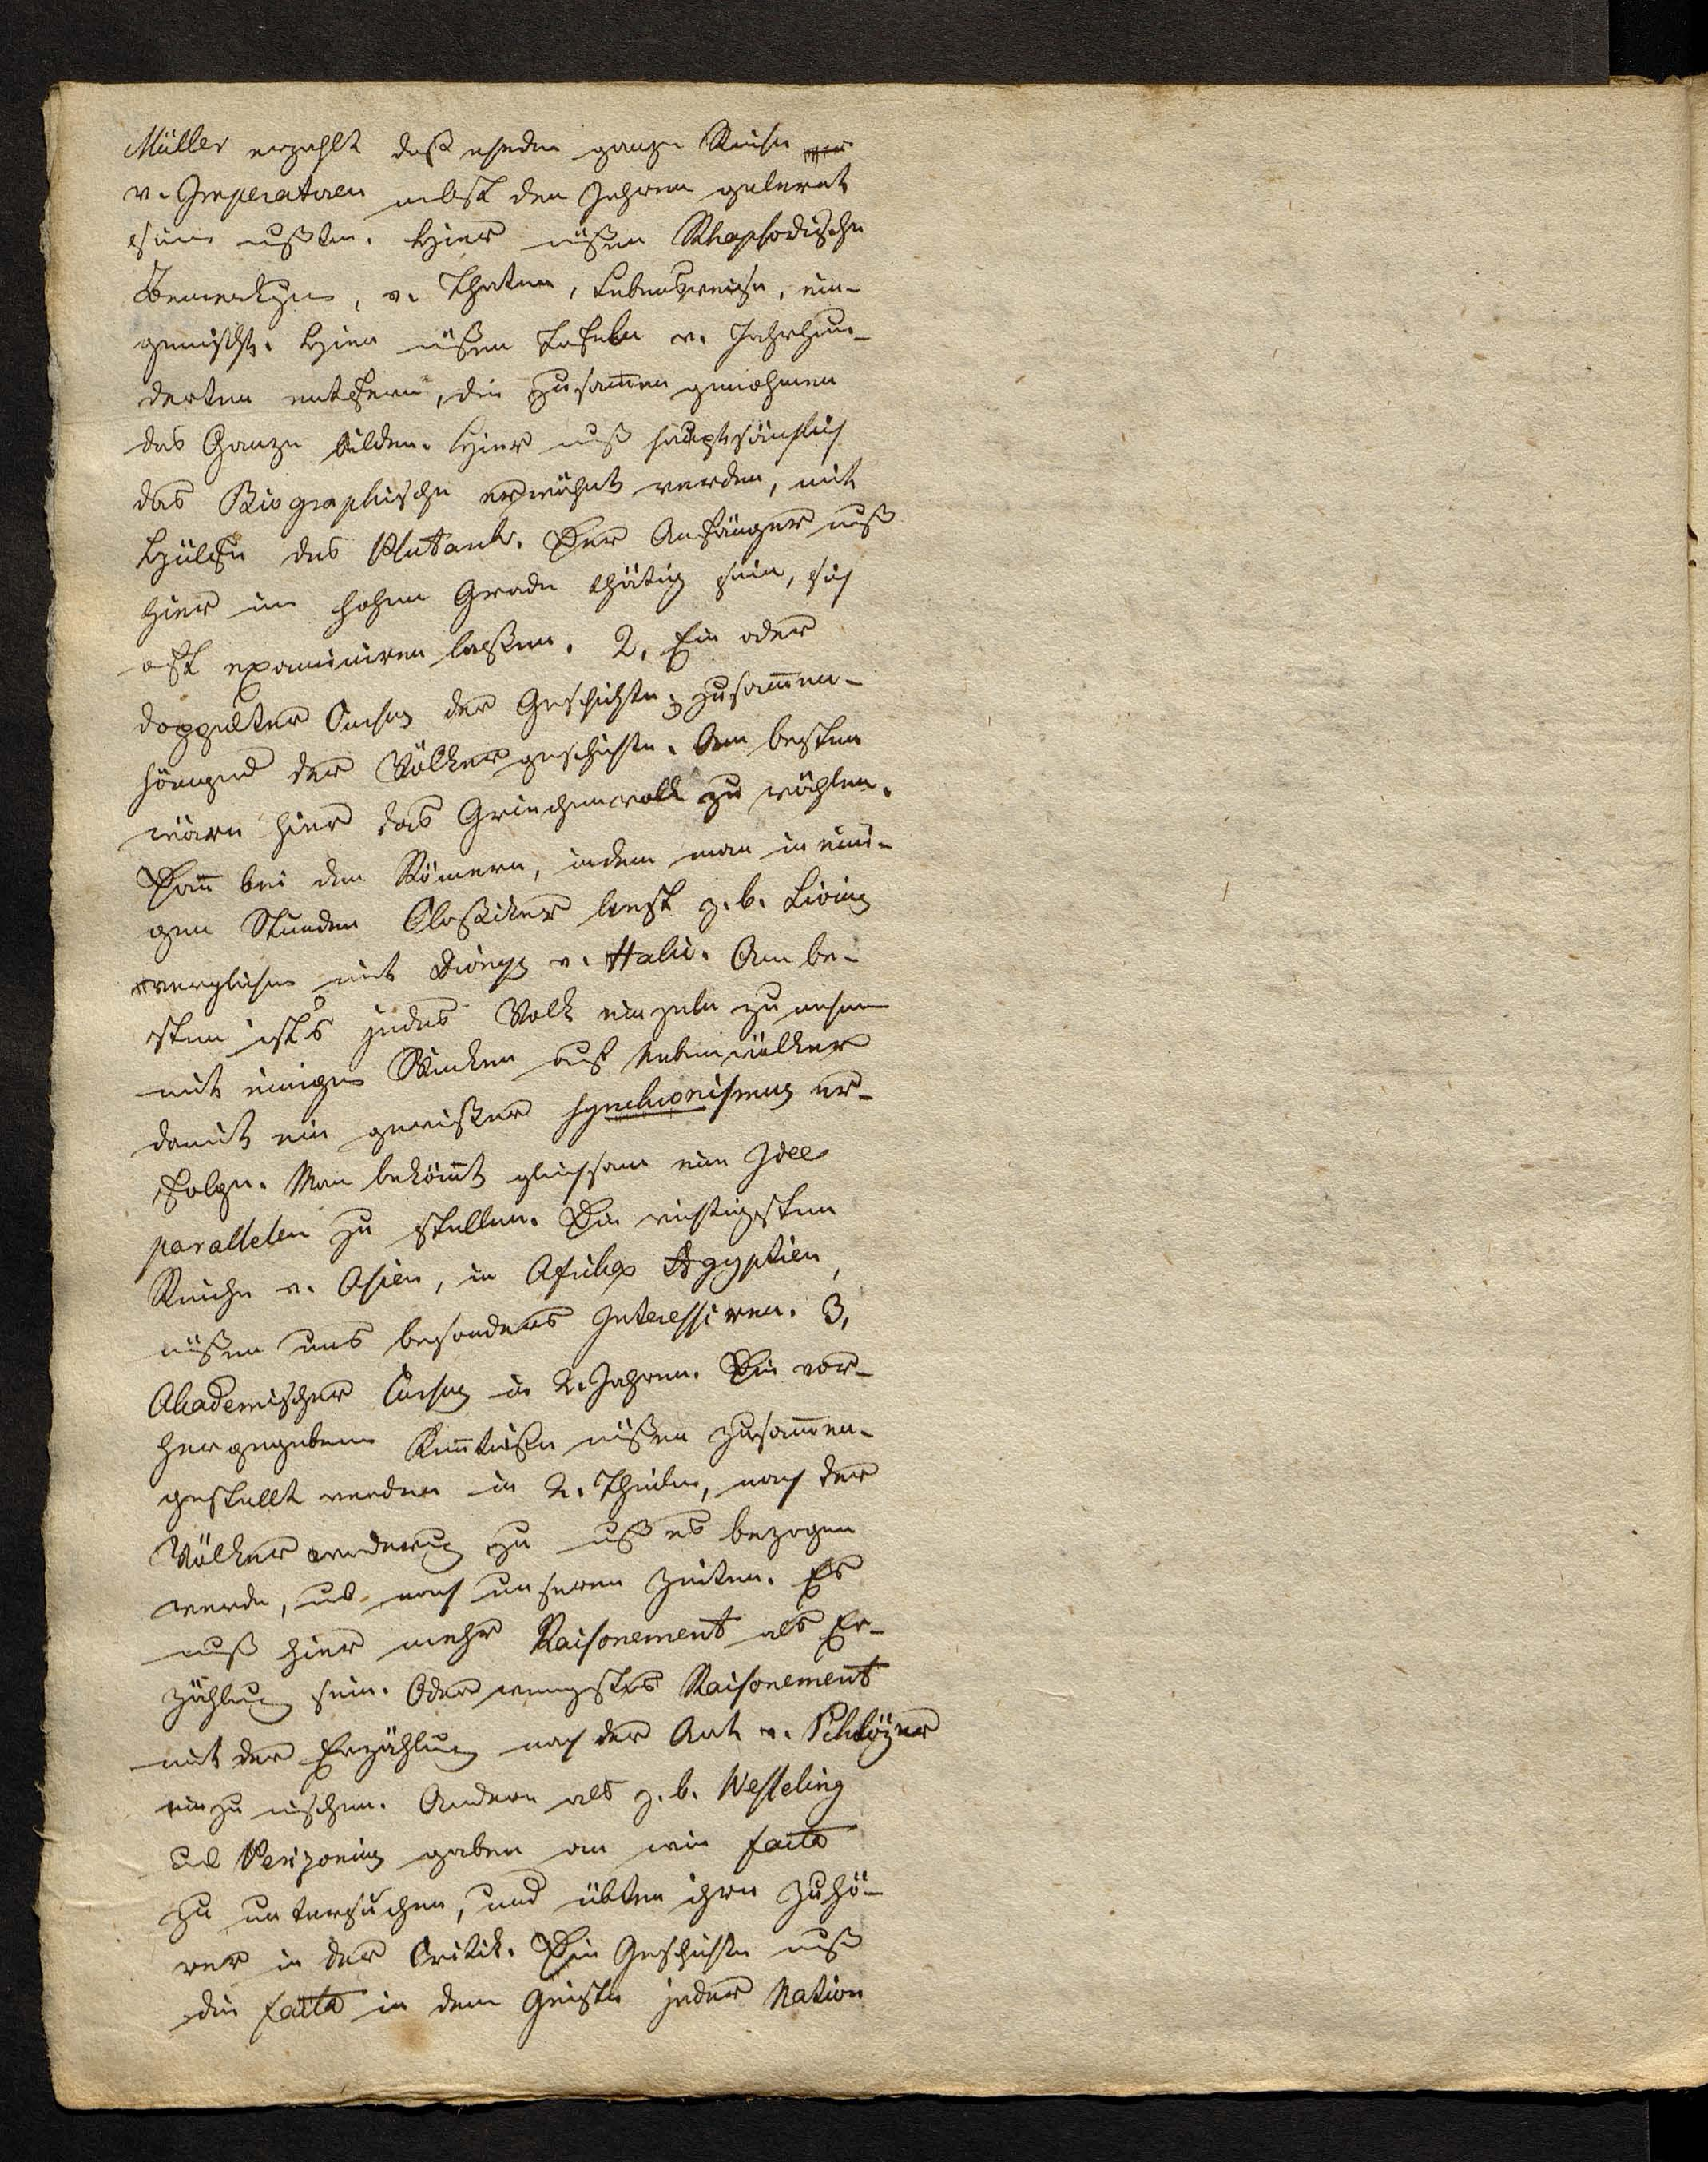 Müller erzahlt daß ehedem ganze Reihen
v. Imperatoren nebst den Jahren gelernt
sein mußten. Hier müßen Rhapsodische
Bemerkungen, v. Thaten, Lebensweise, ein-
gemischt. Hier müßen Tafeln v. Jahrhun-
derten entstehen, die zusam̅en genohmen
das Ganze bilden. Hier muß hauptsächlich
das Biographische erwähnt werden, mit
Hülfe des Plutarch. Der Anfänger muß
hier im hohen Grade thätig sein, sich
oft examiniren laßen. 2, Ein oder
doppelter Cursus der Geschichte; zusam̅en-
hängend der Völkergeschichte. Am besten
wäre hier das Griechenvolk zu wählen.
Dan̅ bei den Römern, indem man in eini-
gen Stunden Claßiker liest z. b. Livius
verglichen mit Dionys v. Halic. Am be-
sten ist's jedes Volk einzeln zu nehmen
mit einigen Winken auf Nebenvölker
damit ein gewißer Synchronismus er-
folge. Man beköm̅t gleichsam eine Idee
parallelen zu stellen. Die wichtigsten
Reiche v. Asien, in Africa Ægyptien,
müßen uns besonders Interessiren. 3,
Akademischer Cursus in 2. Jahren. Die vor-
hergegebenen Ken̅tniße müßen zusam̅en-
gestellt werden in 2. Theilen, nach der
Völkerwanderung zu muß es bezogen
werden, und nach unseren Zeiten. Es
muß hier mehr Raisonement als Er-
zählung sein. Oder wenigstens Raisonement
mit der Erzählung nach der Art v. Schlözer
einzumischen. Andere als z. b. Wesseling
und Perizonius gaben an wie facta
zu untersuchen, und übten ihre Zuhö-
rer in der Critik. Die Geschichte muß
die facta in dem Geiste jeder Nation